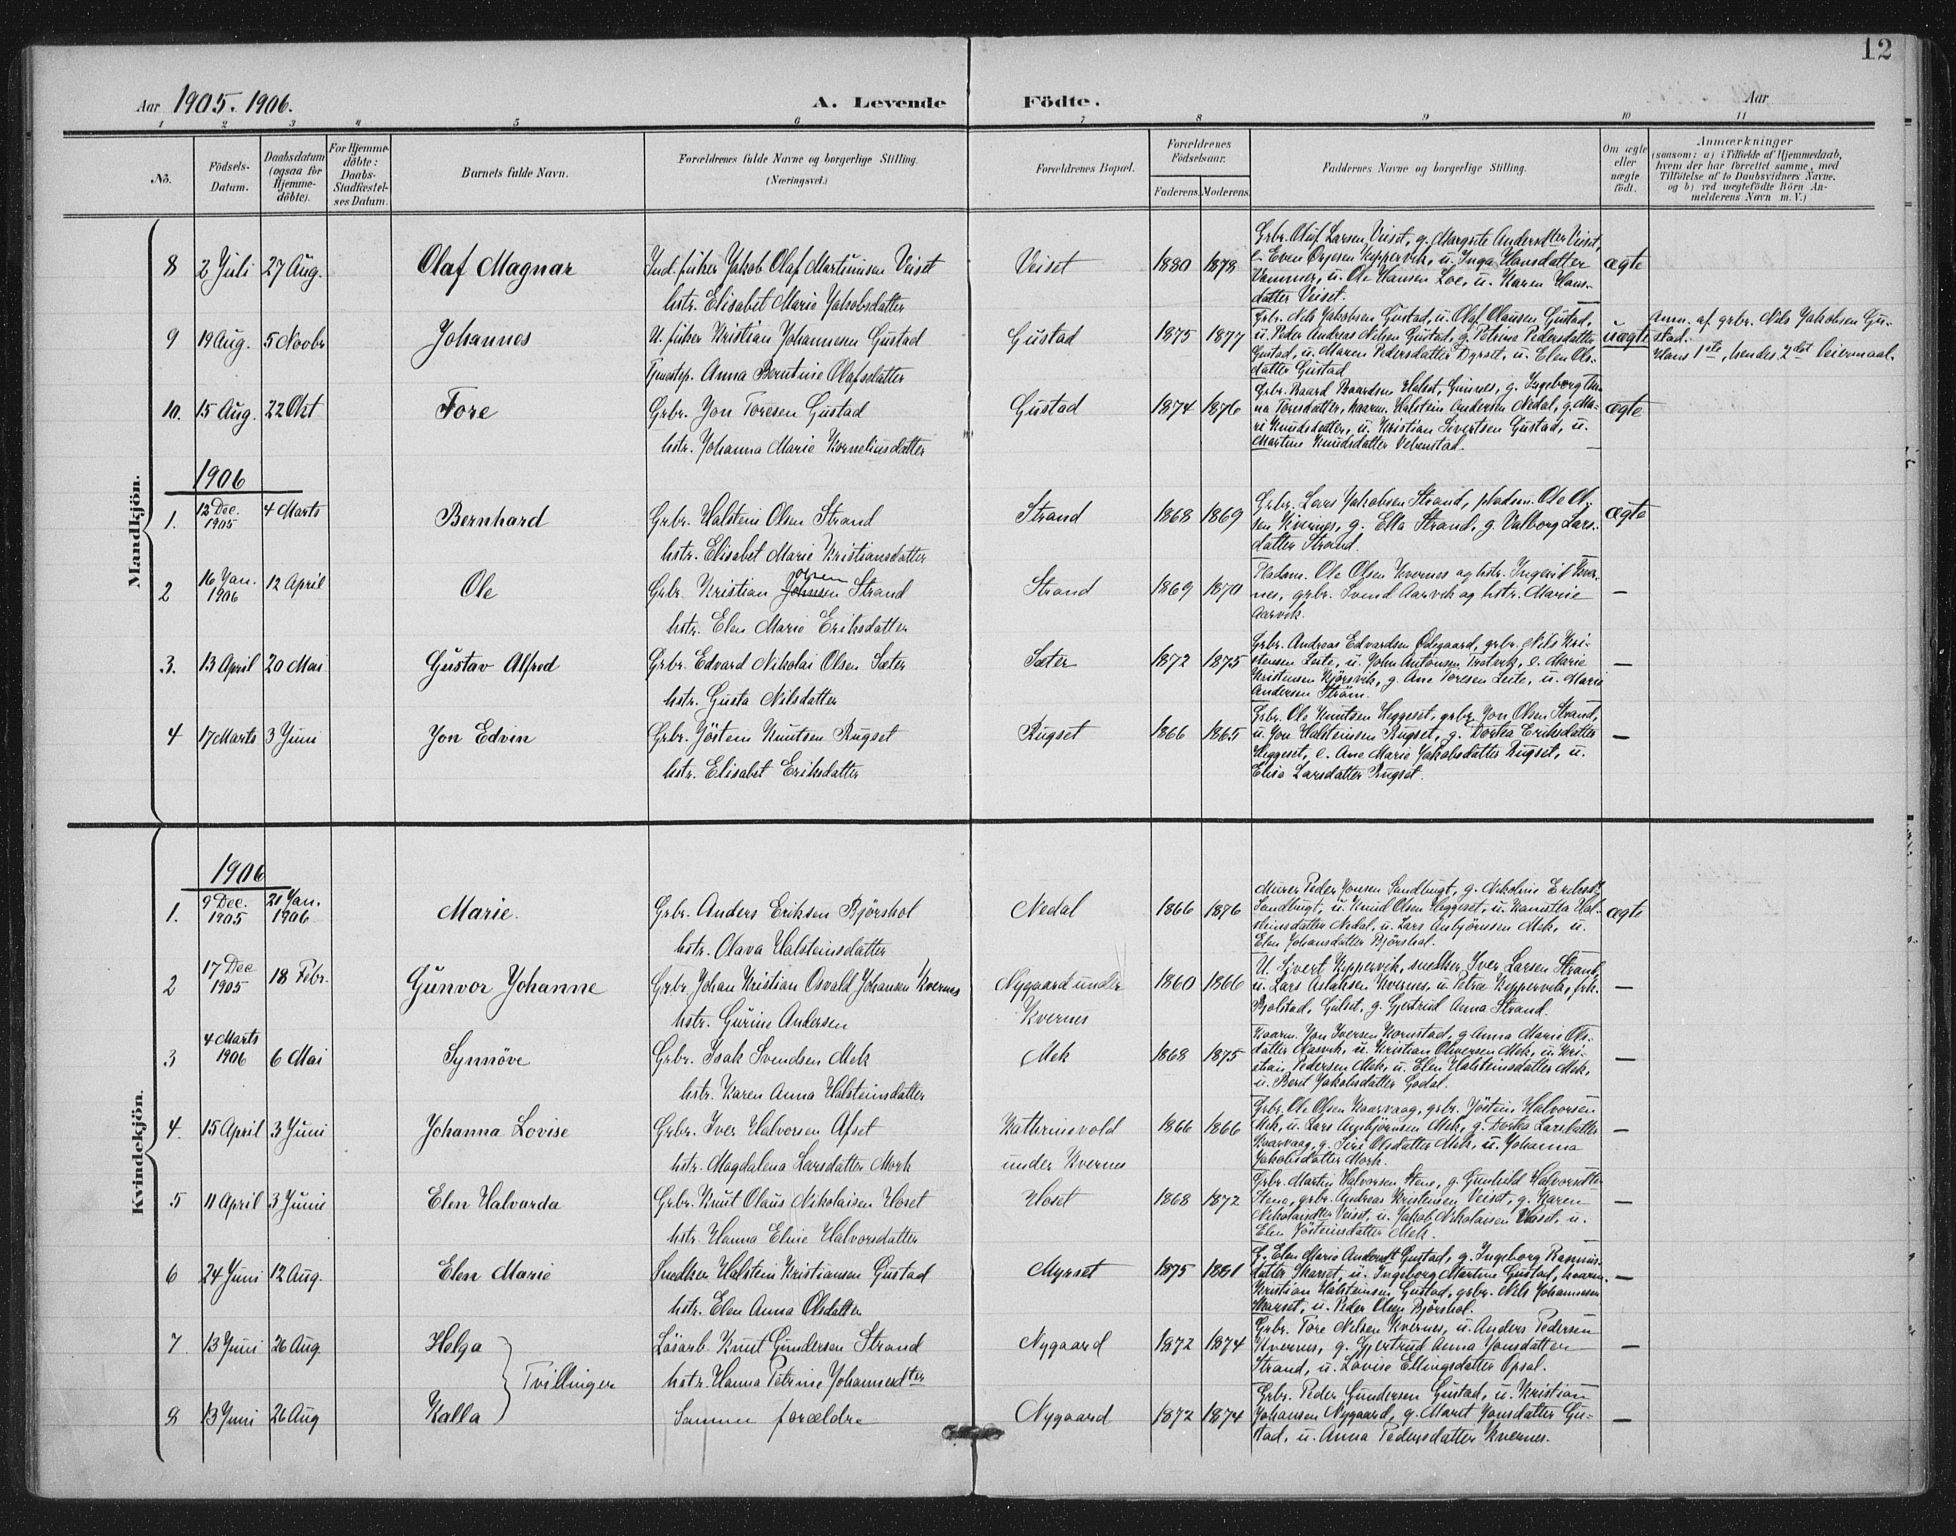 12
Aar 1905. 1906.
A. Levende Födte.
Aar
1 2 3 4 5 6 7 8 9 10 11
No.
Födsels-Datum.
Daabsdatum (ogsaa for Hjemme-döbte).
For Hjemme-döbte: Daabs-Stadfæstel-ses Datum.
Barnets fulde Navn.
Forældrenes fulde Navne og borgerlige Stilling. (Næringsvei.)
Forældrenes Bopæl.
Forældrenes Födselsaar.
Faderens. Moderens.
Faddernes Navne og borgerlige Stilling.
Om ægte eller uægte födt.
Anmærkninger
(saasom: a) i Tilfælde af Hjemmedaab,
hvem der har forrettet samme, med
Tilföielse af to Daabsvidners Navne,
og b) ved uægtefödte Börn An-
melderens Navn m. V.)
Mandkjön.
8 2 Juli 27 Aug. Olaf Magnar Ind. fisker Jakob Olaf Martinusen Veiset Veiset 1880 1878 ægte
hstr. Elisabet Marie Jakobsdatter
Grbr. Oluf Larsen Veiset, g. Margrete Andersdtter Veiset,
e. Even Ovesen Kuppervik, u. Inga Hansdatter
Vammer, u. Ole Hansen Loe, u. Karen Hans-
datter Veiset.
9 19 Aug. 5 Novbr Johannes U. fisker Kristian Johannesen Gustad Gustad 1875 1877 uægte
Tjenestep. Anna Berntine Olafsdatter
Grbr. Nils Jakobsen Gustad, u. Olaf Olausen Gustad,
u. Peder Andreas Nilsen Gustad, g. Petrine Pedersdatter
Gustad, u. Maren Pedersdatter Dyrset, u. Elen Ols-
datter Gustad
Anm. af grbr. Nils Jakobsen Gu-
stad.
Hans 1ste, hendes 2det leiermaal.
10. 15 Aug. 22 Okt Tore Grbr. Jon Toresen Gustad Gustad 1874 1876 ægte
hstr. Johanna Marie Korneliusdatter
Grbr. Baard Baardsen Halset, Gimnes, g. Ingeborg An-
na Toresdatter, kaarm. Halstein Andersen Nedal, g. Ma-
ri Knudsdatter, u. Kristian Sivertsen Gustad, u.
Martine Knudsdatter Vebenstad.
1906
1. 12 Dec. 1905 4 Marts Bernhard Grbr. Halstein Olsen Strand Strand 1868 1869 ægte
hstr. Elisabet Marie Kristiansdatter
Grbr. Lars Jakobsen Strand, pladsm. Ole Ol-
sen Kvernes, g. Ella Strand, g. Valborg Lars-
datter Strand.
2 16 Jan. 1906 12 April Ole Grbr. Kristian Johnsen Olsen Strand Strand 1869 1870 —
hstr. Elen Marie Eriksdatter
Pladsm. Ole Olsen Kvernes og hstr. Ingerid Kver-
nes, grbr. Svend Aarvik og hstr. Marie
Aarvik.
3. 13 April 20 Mai Gustav Alfred Grbr. Edvard Nikolai Olsen Sæter Sæter 1872 1875 —
hstr. Gusta Nilsdatter
Grbr. Andreas Edvardsen Ødegaard, grbr. Nils Kri-
stensen Leite, u. John Antonsen Trotvik, e. Marie
Kristensen Kjørsvik, g. Ane Toresen Leite, u. Marie
Andersen Strøm.
4 17 Marts 3 Juni Jon Edvin Grbr. Jöstein Knutsen Rugset Rugset 1866 1865 —
hstr. Elisabet Eriksdatter
Grbr. Ole Knutsen Heggeset, grbr. Jon Olsen Strand,
u. Jon Halsteinsen Rugset, g. Dorka Eriksdatter
Heggeset, e. Ane Marie Jakobsdatter Rugset, u.
Elise Larsdatter Rugset.
Kvindekjön.
1906
1. 9 Dec. 1905 21 Jan. 1906 Marie. Grbr. Anders Eriksen Bjørshol Nedal 1866 1876 ægte
hstr. Olava Halsteinsdatter
Murer Peder Jonsen Sandbugt, g. Nikoline Eriksdtr
Sandbugt, u. Knud Olsen Heggeset, u. Hansetta Hal-
steinsdatter Nedal, u. Lars Anbjørnsen Mek, u.
Elen Johansdatter Bjørshol.
2 17 Dec 1905 18 Febr. Gunvor Johanne Grbr. Johan Kristian Osvald Johansen Kvernes Nygaard under Kvernes 1860 1866 —
hstr. Gurine Andersen
U. Sivert Kuppervik, snedker Iver Larsen Strand,
u. Lars Aslaksen Kvernes, u. Petra Kuppervik, frk.
Bjolstad, Gulset, g. Gjertrud Anna Strand.
3 4 Marts 1906 6 Mai Synnöve Grbr. Isak Svendsen Mek Mek 1868 1875 —
hstr. Karen Anna Halsteinsdatter
Kaarm. Jon Iversen Kornstad, g. Anna Marie Ols-
datter Aasvik, u. Kristian Oliversen Mek, u. Kri-
stian Pedersen Mek, u. Elen Halsteinsdatter Mek,
u. Berit Jakobsdatter Godal.
4. 15 April 3 Juni Johanna Lovise Grbr. Iver Halvorsen Afset Kathrinevold under Kvernes 1866 1866 —
hstr. Magdalena Larsdatter Mork
Grbr. Ole Olsen Kaarvaag, grbr. Jöstein Halvorsen
Mek, u. Lars Anbjörnsen Mek, g. Dorka Larsdatter
Kaarvaag, g. Siri Olsdatter Mek, u. Johanna
Jakobsdatter Mork.
5 11 April 3 Juni Elen Halvarda Grbr. Knut Olaus Nikolaisen Hoset Hoset 1868 1872 —
hstr. Hanna Eline Halvorsdatter
Grbr. Martin Halvorsen Stene, g. Gunhild Halvorsdtter
Stene, grbr. Andreas Kristensen Veiset, g. Karen
Nikolaisdtter Veiset, u. Jakob Nikolaisen Veiset, u.
Elen Jösteinsdatter Mek.
6 24 Juni 12 Aug. Elen Marie Snedker Halstein Kristiansen Gustad Myrset 1875 1881 —
hstr. Elen Anna Olsdatter
G. Elen Marie Andersdt Gustad, g. Ingeborg Rasmus-
datter Skarset, u. Ingeborg Martine Gustad, kaarm.
Kristian Halsteinsen Gustad, grbr. Nils Johannesen
Skarset, u. Peder Olsen Bjørshol.
7 13 Juni 26 Aug Helga Løsarb. Knut Gundersen Strand Nygaard 1872 1874 —
Tvillinger
hstr. Hanna Petrine Johannesdtter
Grbr. Tore Nilsen Kvernes, u. Anders Pedersen
Kvernes, g. Gjertrud Anna Jonsdatter
Strand, u. Lovise Ellingsdatter Opsal.
8 13 Juni 26 Aug Kalla Samme forældre Nygaard 1872 1874 —
Grbr. Peder Gundersen Gustad, u. Kristian
Johansen Nygaard, g. Marit Jonsdatter Gu-
stad, u. Anna Pedersdatter Kvernes.